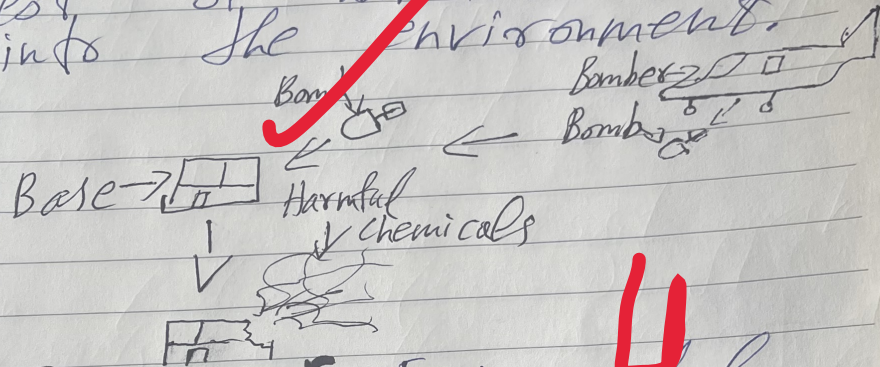 into the environment.
Bomber
Bomb
Bomb
Base
Harmful
chemicals